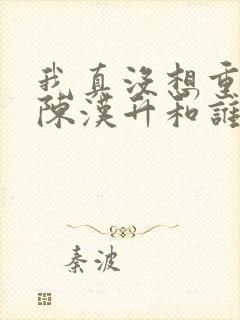 我真沒想重
陳漢升和誰
秦波